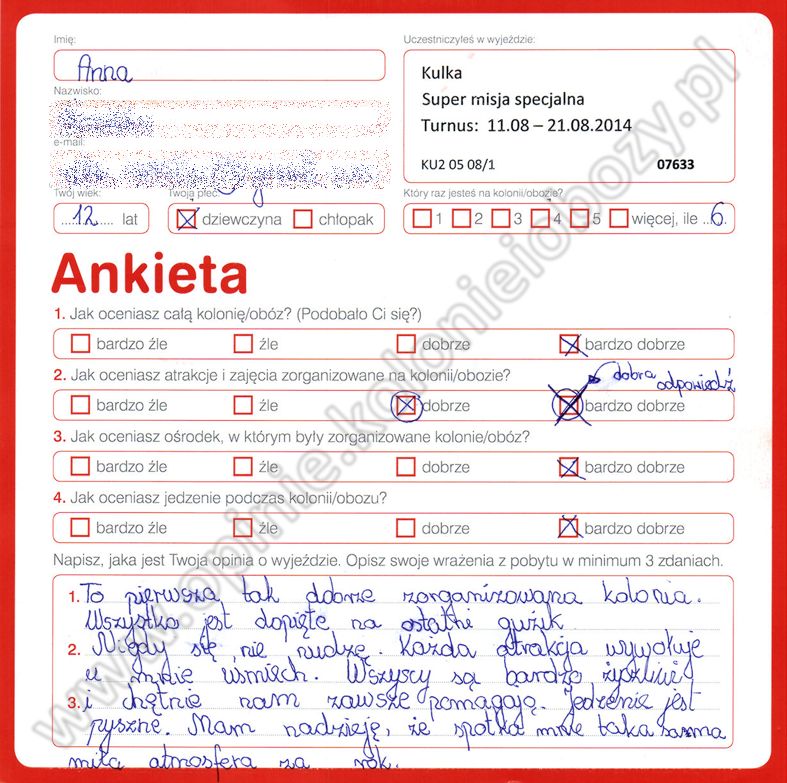 Imię:
Anna
Nazwisko:
e-mail:
Twój wiek:
12 lat
Twoja płeć:
dziewczyna chłopak
Uczestniczyłeś w wyjeździe:
Kulka
Super misja specjalna
Turnus: 11.08 – 21.08.2014
KU2 05 08/1 07633
Który raz jesteś na kolonii/obozie?
1 2 3 4 5 więcej, ile ..6.
Ankieta
1. Jak oceniasz całą kolonię/obóz? (Podobało Ci się?)
bardzo źle źle dobrze bardzo dobrze
2. Jak oceniasz atrakcje i zajęcia zorganizowane na kolonii/obozie?
dobra odpowiedź
bardzo źle źle dobrze bardzo dobrze
3. Jak oceniasz ośrodek, w którym były zorganizowane kolonie/obóz?
bardzo źle źle dobrze bardzo dobrze
4. Jak oceniasz jedzenie podczas kolonii/obozu?
bardzo źle źle dobrze bardzo dobrze
Napisz, jaka jest Twoja opinia o wyjeździe. Opisz swoje wrażenia z pobytu w minimum 3 zdaniach.
1. To pierwsza tak dobrze zorganizowana kolonia.
Wszystko jest dopięte na ostatni guzik
2. Nigdy się nie nudzę. Każda atrakcja wywołuje
u mnie uśmiech. Wszyscy są bardzo życzliwi
3. i chętnie nam zawsze pomagają. Jedzenie jest
pyszne. Mam nadzieję, że spotka mnie taka sama
miła atmosfera za rok.
www.opinie.kolonieiobozy.pl